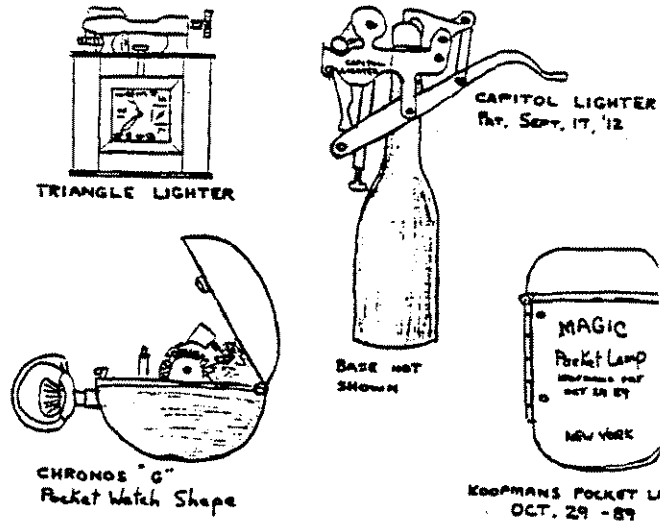 TRIANGLE LIGHTER
CAPITOL
LIGHTER
CAPITOL LIGHTER
PAT. SEPT. 17, '12
BASE NOT
SHOWN
CHRONOS "G"
Pocket Watch Shape
MAGIC
Pocket Lamp
OCT 29 89
NEW YORK
KOOPMANS POCKET L
OCT. 29 - 89